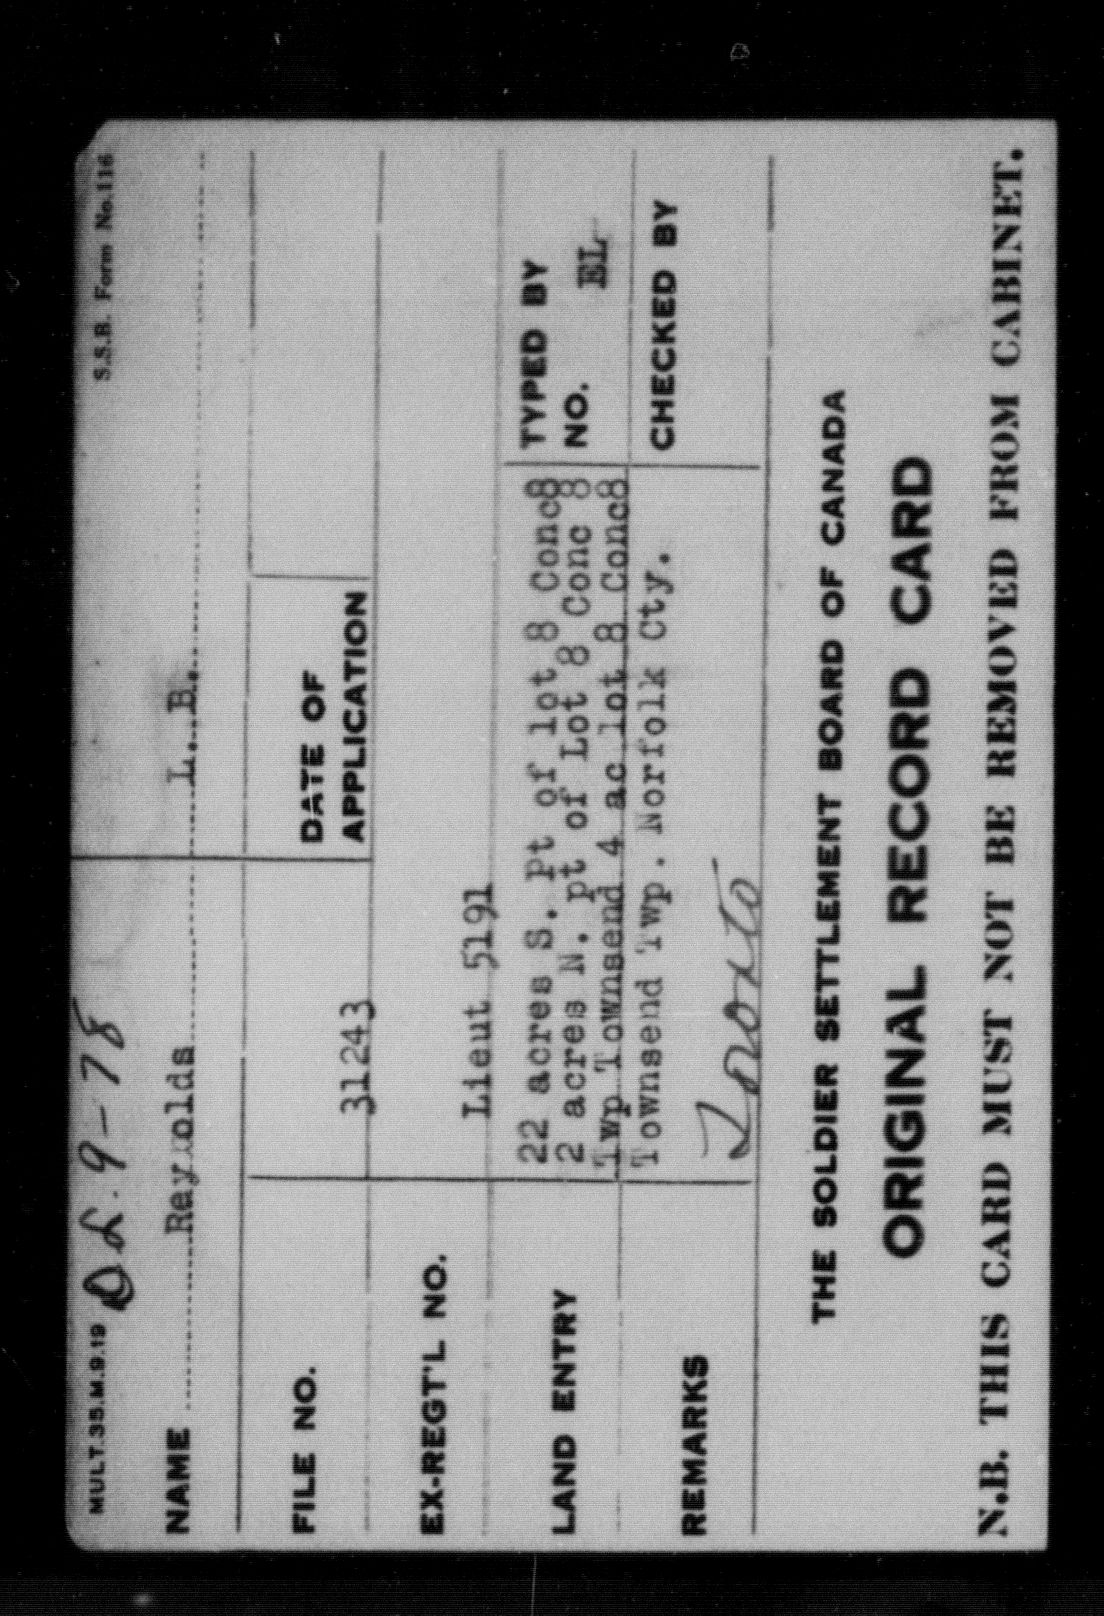 MULT.35.M.9.19 DL.9-78 S.S.B. Form No.116
NAME Reynolds L. B.
FILE NO. 31243 DATE OF APPLICATION
EX-REGT'L NO. Lieut 5191
LAND ENTRY 22 acres S. Pt of lot 8 Conc8
2 acres N. pt of Lot 8 Conc 8
Twp Townsend 4 ac lot 8 Conc8
Townsend Twp. Norfolk Cty.
TYPED BY
NO. EL
REMARKS Toronto CHECKED BY
THE SOLDIER SETTLEMENT BOARD OF CANADA
ORIGINAL RECORD CARD
N.B. THIS CARD MUST NOT BE REMOVED FROM CABINET.